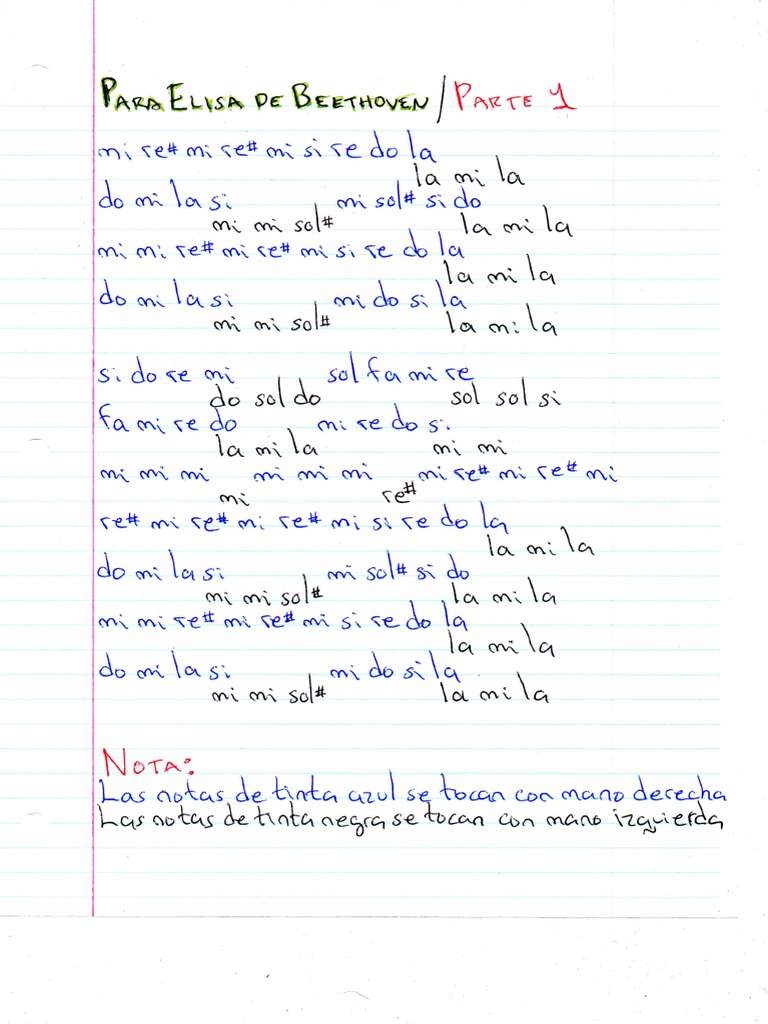 PARA ELISA DE BEETHOVEN / PARTE 1
mi re# mi re# mi si re do la
la mi la
do mi la si mi sol# si do
mi mi sol# la mi la
mi mi re# mi re# mi si re do la
la mi la
do mi la si mi do si la
mi mi sol# la mi la
si do re mi sol fa mi re
do sol do sol sol si
fa mi re do mi re do si
la mi la mi mi
mi mi mi mi mi mi mi re# mi re# mi
mi re#
re# mi re# mi re# mi si re do la
la mi la
do mi la si mi sol# si do
mi mi sol# la mi la
mi mi re# mi re# mi si re do la
la mi la
do mi la si mi do si la
mi mi sol# la mi la
NOTA:
Las notas de tinta azul se tocan con mano derecha
Las notas de tinta negra se tocan con mano izquierda